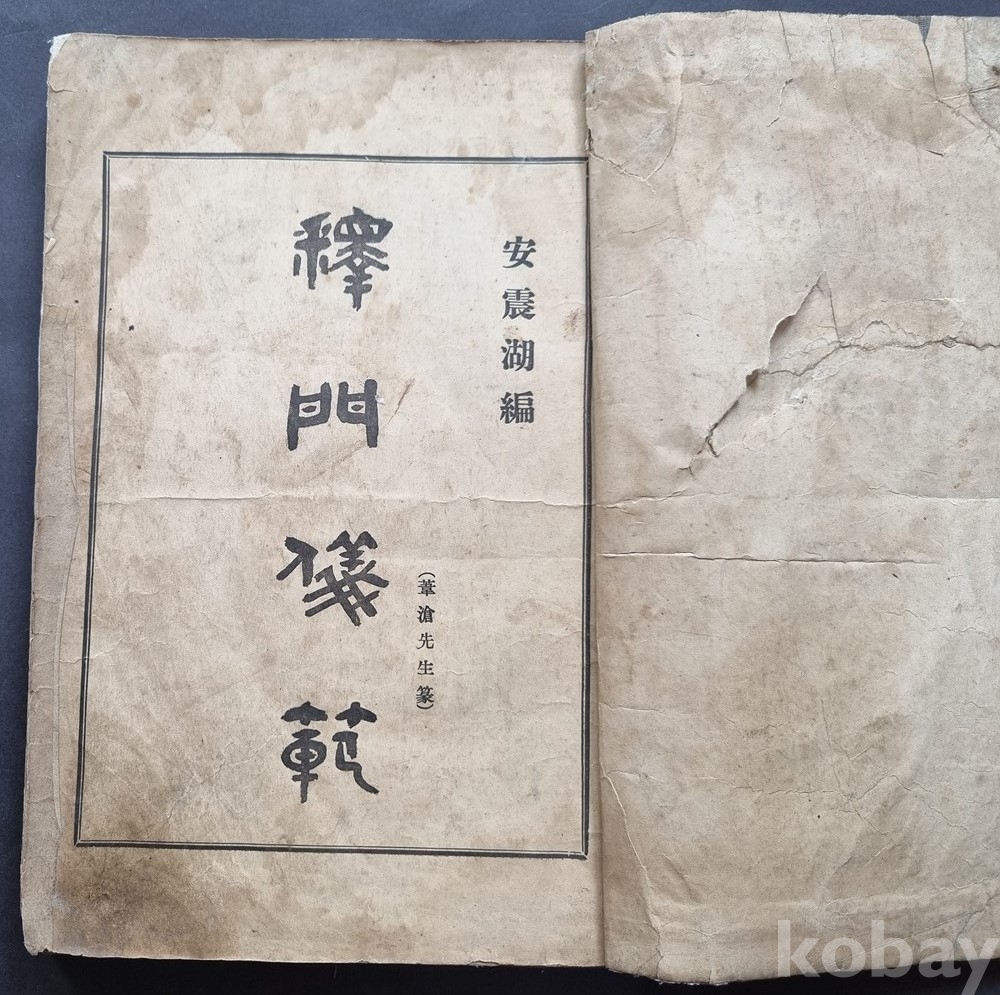 安震湖編
(葦滄先生篆)
釋門儀範
kobay